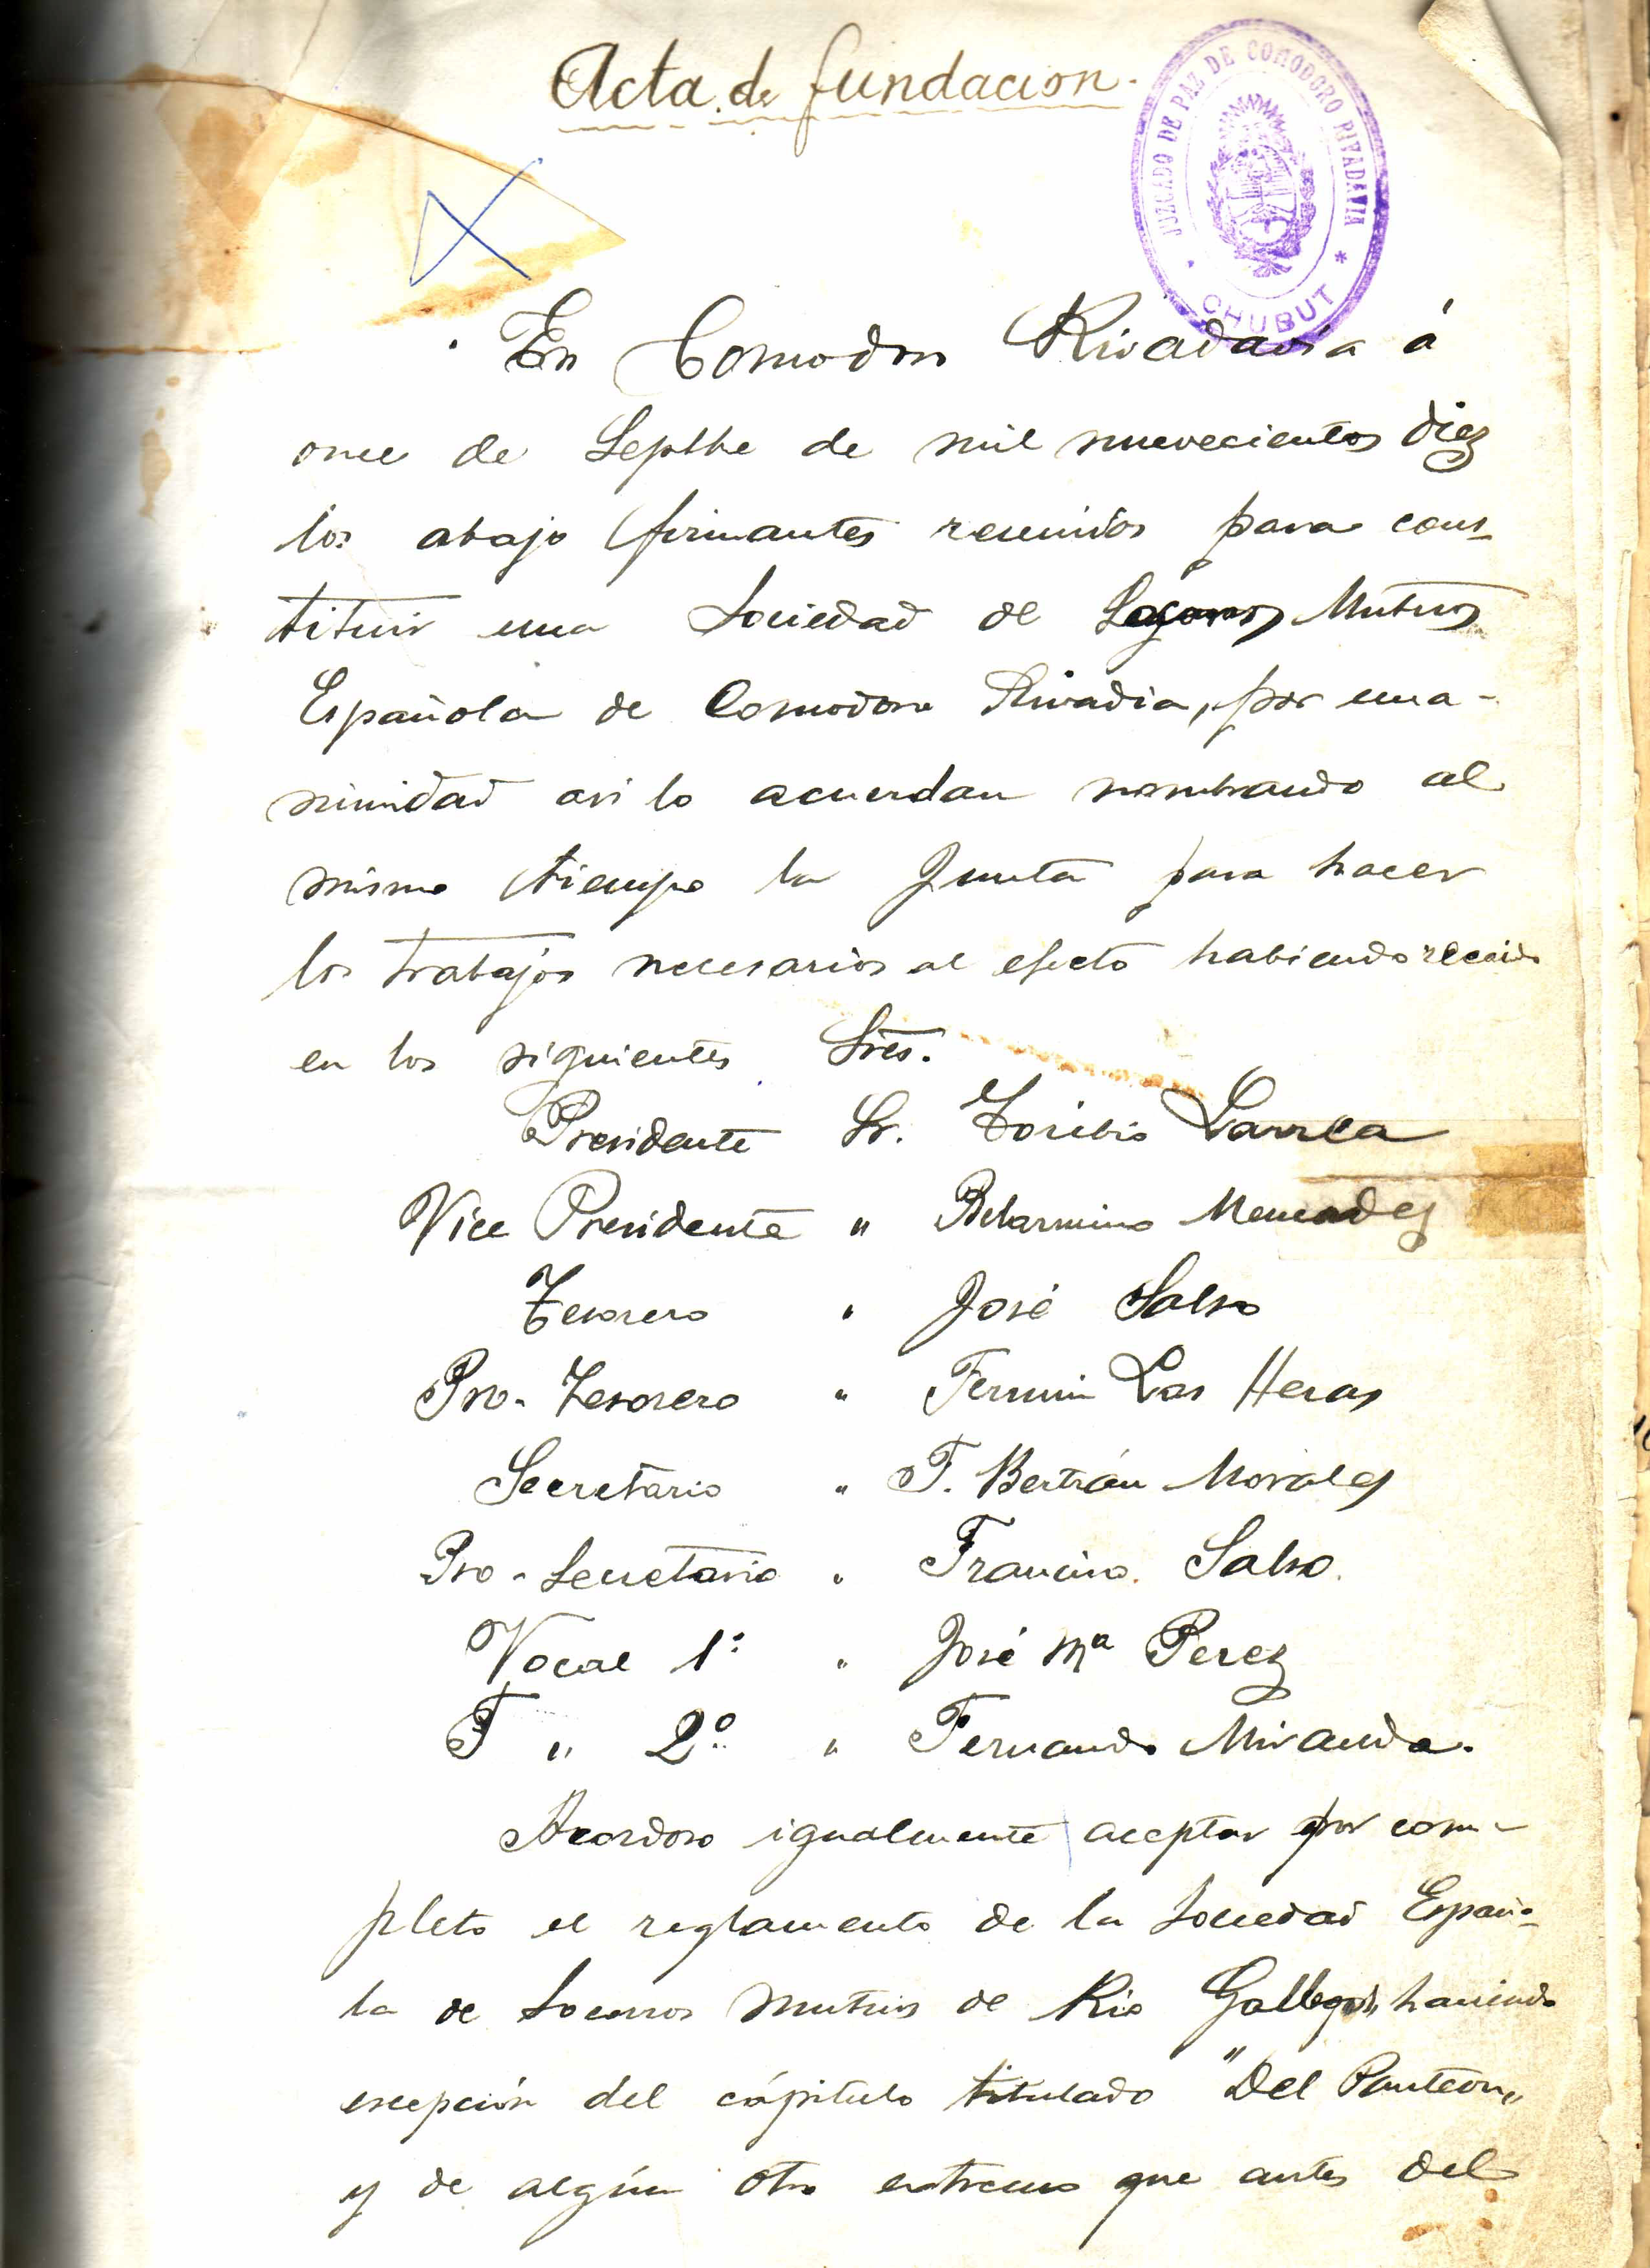 Acta de fundacion.
JUZGADO DE PAZ DE COMODORO RIVADAVIA
* CHUBUT *
En Comodoro Rivadavia á
once de Sepbre de mil nuevecientos diez
los abajo firmantes reunidos para cons-
tituir una Sociedad de Socorros Mutuos
Española de Comodoro Rivadia, por una-
nimidad asi lo acuerdan nombrando al
mismo tiempo la Junta para hacer
los trabajos necesarios al efecto habiendo recaido
en los siguientes Sres.
Presidente Sr. Toribio Larrea
Vice Presidente " Belarmino Menendez
Tesorero " José Salso
Pro-Tesorero " Fermin Las Heras
Secretario " F. Bertrán Morales
Pro-Secretario " Francisco Salso.
Vocal 1º " José Mª Perez
" 2º " Fernando Miranda.
Acordose igualmente aceptar por com-
pleto el reglamento de la Sociedad Españo-
la de Socorros mutuos de Rio Gallegos, haciendo
escepción del cápitulo titulado "Del Panteon"
y de algún otro extremo que antes del